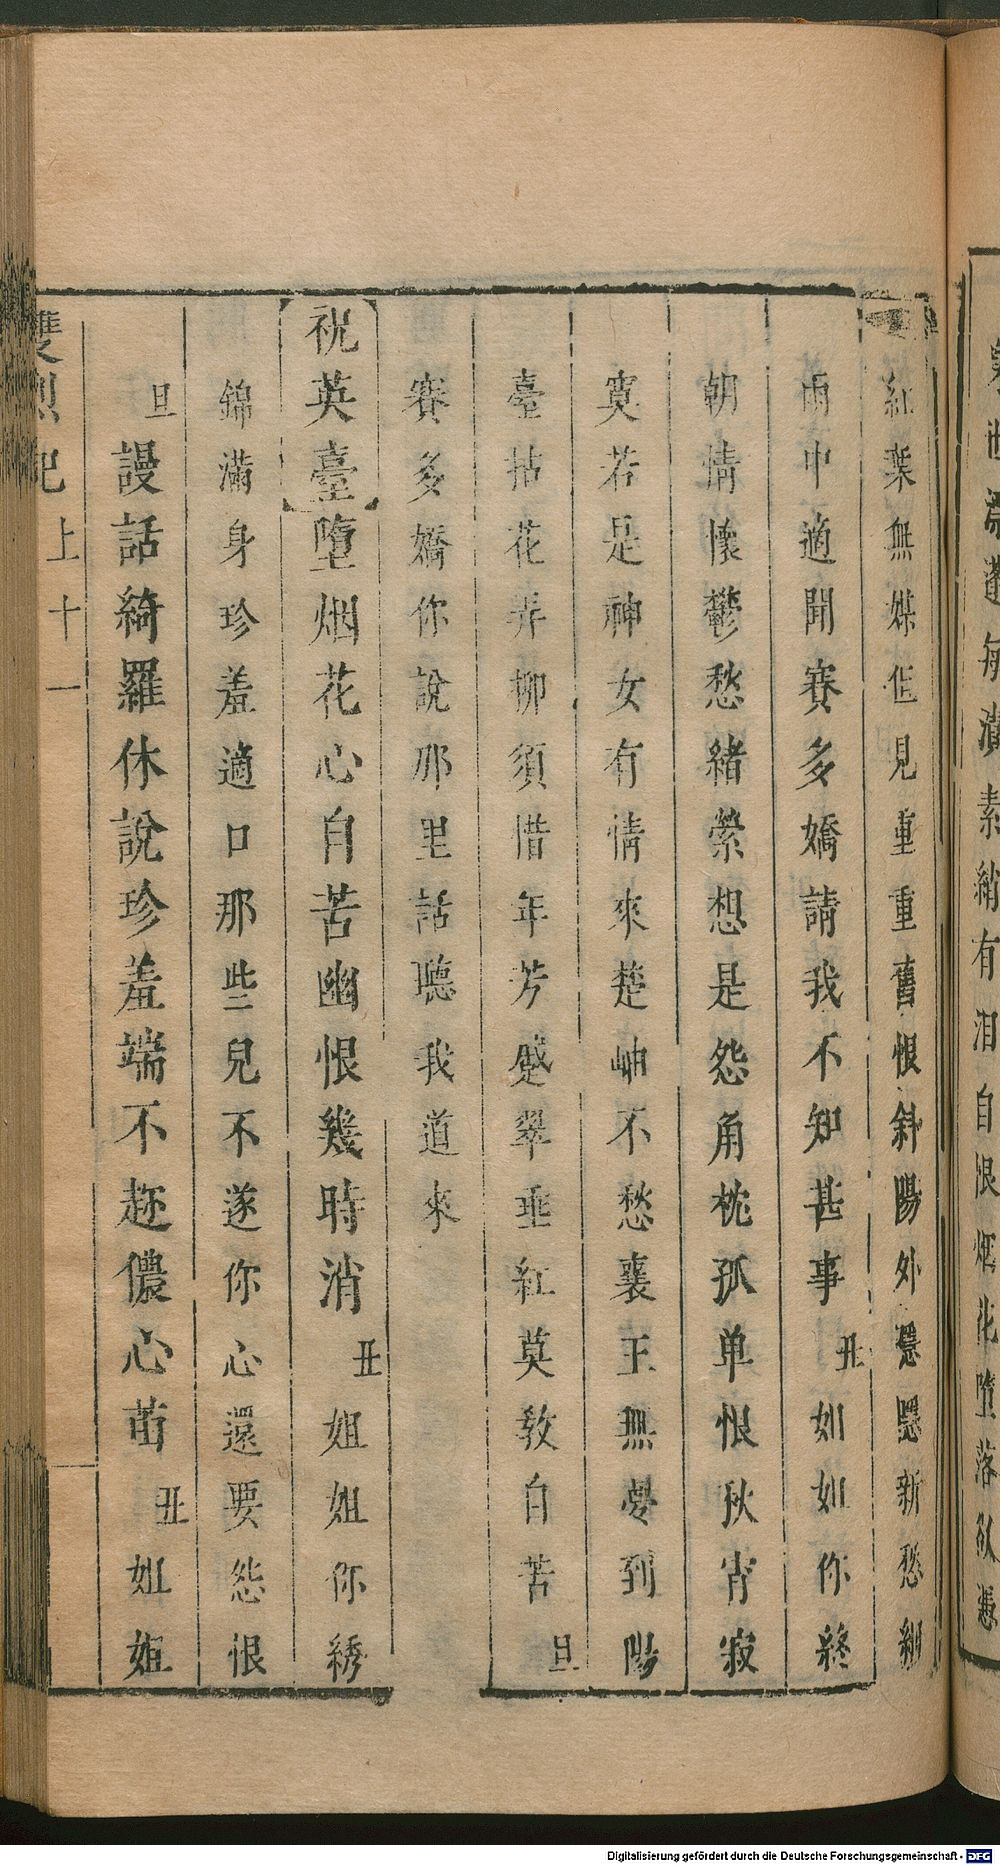 紅葉無媒但見重重舊恨斜陽外隱隱新愁細
雨中適聞賽多嬌請我不知甚事丑如如你終
朝情懷鬱愁緒縈想是怨角枕孤单恨秋宵寂
寞若是神女有情來楚岫不愁襄王無夢到陽
臺拈花弄柳須惜年芳蹙翠垂紅莫教自苦旦
賽多嬌你說那里話聽我道來
祝英臺墮烟花心自苦幽恨幾時消丑姐姐你綉
錦滿身珍羞適口那些兒不遂你心還要怨恨
旦謾話綺羅休說珍羞端不趂儂心苗丑姐姐
雙烈記 上 十一
有 自恨烟花墮落
Digitalisierung gefördert durch die Deutsche Forschungsgemeinschaft - DFG